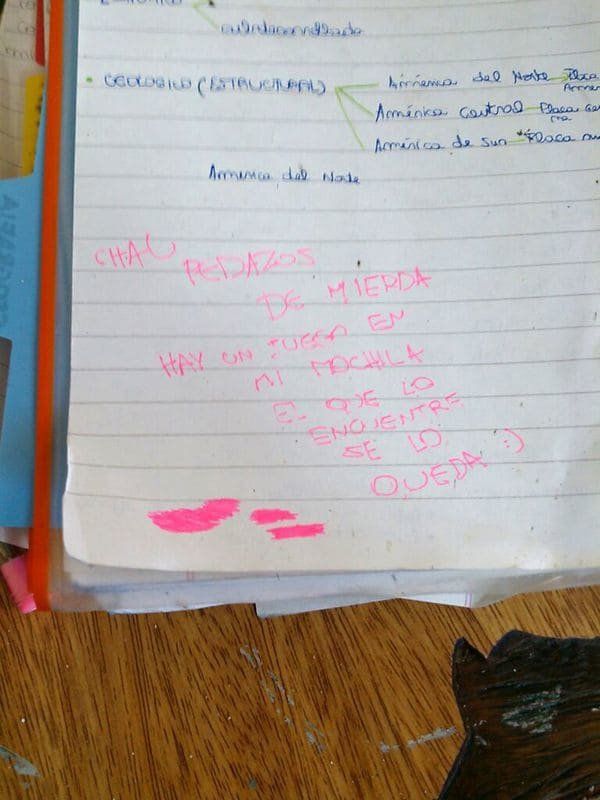 • GEOLOGICO (ESTRUCTURAL)
America del Norte Placa
América Central Placa
América de sur Placa
America del Norte
CHAU PEDAZOS
DE MIERDA
HAY UN JUEGO EN
MI MOCHILA
EL QUE LO
ENCUENTRE
SE LO
QUEDA :)